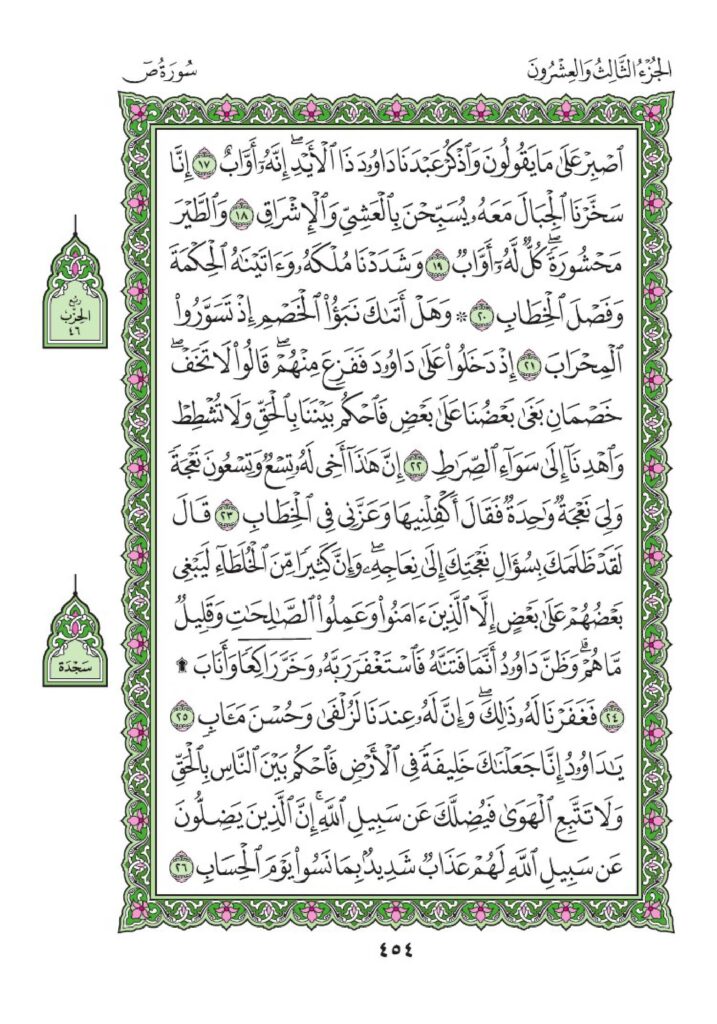 الجُزْءُ الثَّالِثُ وَالعِشْرُونَ
سُورَةُ صٓ
ٱصۡبِرۡ عَلَىٰ مَا يَقُولُونَ وَٱذۡكُرۡ عَبۡدَنَا دَاوُۥدَ ذَا ٱلۡأَيۡدِۖ إِنَّهُۥٓ أَوَّابٌ ١٧ إِنَّا
سَخَّرۡنَا ٱلۡجِبَالَ مَعَهُۥ يُسَبِّحۡنَ بِٱلۡعَشِيِّ وَٱلۡإِشۡرَاقِ ١٨ وَٱلطَّيۡرَ
مَحۡشُورَةٗۖ كُلّٞ لَّهُۥٓ أَوَّابٞ ١٩ وَشَدَدۡنَا مُلۡكَهُۥ وَءَاتَيۡنَٰهُ ٱلۡحِكۡمَةَ
وَفَصۡلَ ٱلۡخِطَابِ ٢٠ ۞ وَهَلۡ أَتَىٰكَ نَبَؤُاْ ٱلۡخَصۡمِ إِذۡ تَسَوَّرُواْ
رُبْع
الحِزْبِ
٤٦
ٱلۡمِحۡرَابَ ٢١ إِذۡ دَخَلُواْ عَلَىٰ دَاوُۥدَ فَفَزِعَ مِنۡهُمۡۖ قَالُواْ لَا تَخَفۡۖ
خَصۡمَانِ بَغَىٰ بَعۡضُنَا عَلَىٰ بَعۡضٖ فَٱحۡكُم بَيۡنَنَا بِٱلۡحَقِّ وَلَا تُشۡطِطۡ
وَٱهۡدِنَآ إِلَىٰ سَوَآءِ ٱلصِّرَٰطِ ٢٢ إِنَّ هَٰذَآ أَخِي لَهُۥ تِسۡعٞ وَتِسۡعُونَ نَعۡجَةٗ
وَلِيَ نَعۡجَةٞ وَٰحِدَةٞ فَقَالَ أَكۡفِلۡنِيهَا وَعَزَّنِي فِي ٱلۡخِطَابِ ٢٣ قَالَ
لَقَدۡ ظَلَمَكَ بِسُؤَالِ نَعۡجَتِكَ إِلَىٰ نِعَاجِهِۦۖ وَإِنَّ كَثِيرٗا مِّنَ ٱلۡخُلَطَآءِ لَيَبۡغِي
بَعۡضُهُمۡ عَلَىٰ بَعۡضٍ إِلَّا ٱلَّذِينَ ءَامَنُواْ وَعَمِلُواْ ٱلصَّٰلِحَٰتِ وَقَلِيلٞ
مَّا هُمۡۗ وَظَنَّ دَاوُۥدُ أَنَّمَا فَتَنَّٰهُ فَٱسۡتَغۡفَرَ رَبَّهُۥ وَخَرَّۤ رَاكِعٗاۤ وَأَنَابَ ۩
سَجْدَة
٢٤ فَغَفَرۡنَا لَهُۥ ذَٰلِكَۖ وَإِنَّ لَهُۥ عِندَنَا لَزُلۡفَىٰ وَحُسۡنَ مَـَٔابٖ ٢٥
يَٰدَاوُۥدُ إِنَّا جَعَلۡنَٰكَ خَلِيفَةٗ فِي ٱلۡأَرۡضِ فَٱحۡكُم بَيۡنَ ٱلنَّاسِ بِٱلۡحَقِّ
وَلَا تَتَّبِعِ ٱلۡهَوَىٰ فَيُضِلَّكَ عَن سَبِيلِ ٱللَّهِۚ إِنَّ ٱلَّذِينَ يَضِلُّونَ
عَن سَبِيلِ ٱللَّهِ لَهُمۡ عَذَابٞ شَدِيدُۢ بِمَا نَسُواْ يَوۡمَ ٱلۡحِسَابِ ٢٦
٤٥٤